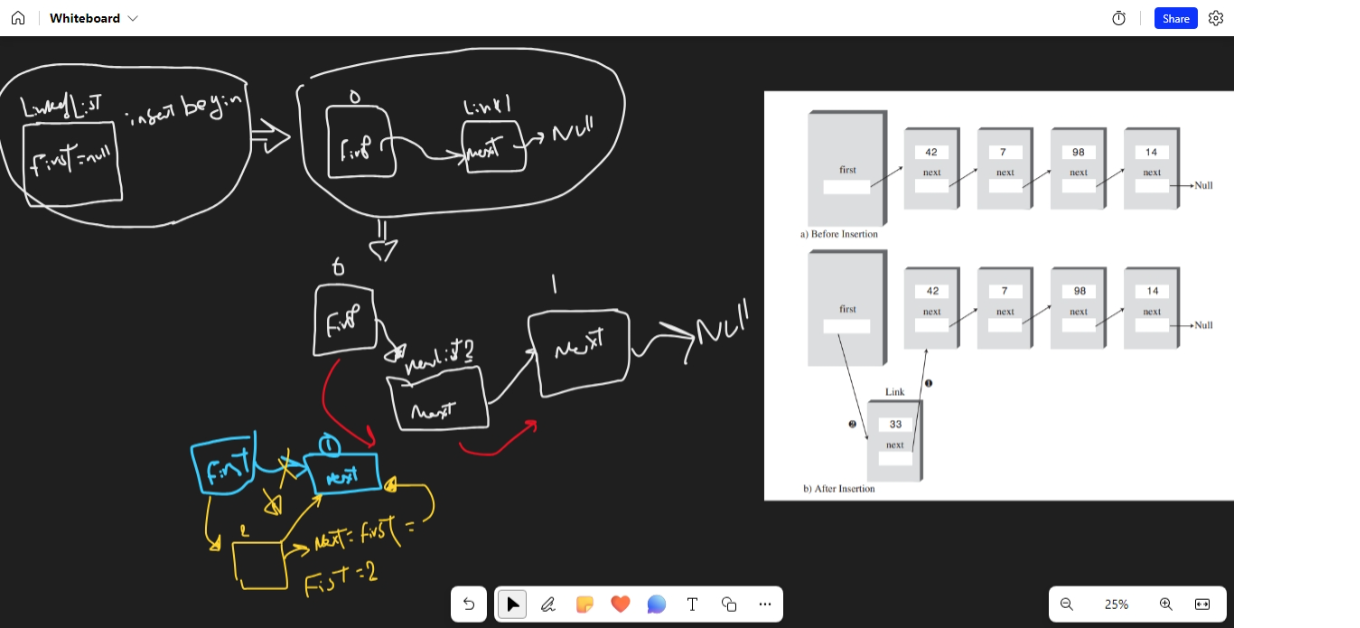 Whiteboard
Share
LinkedList
insert begin
first=null
0
first
Link1
next
Null
6
first
newlist2
next
1
Next
Null
first
1
next
2
Next=first=
Fist=2
first
42
next
7
next
98
next
14
next
Null
a) Before Insertion
first
42
next
7
next
98
next
14
next
Null
Link
❶
❷
33
next
b) After Insertion
T
25%